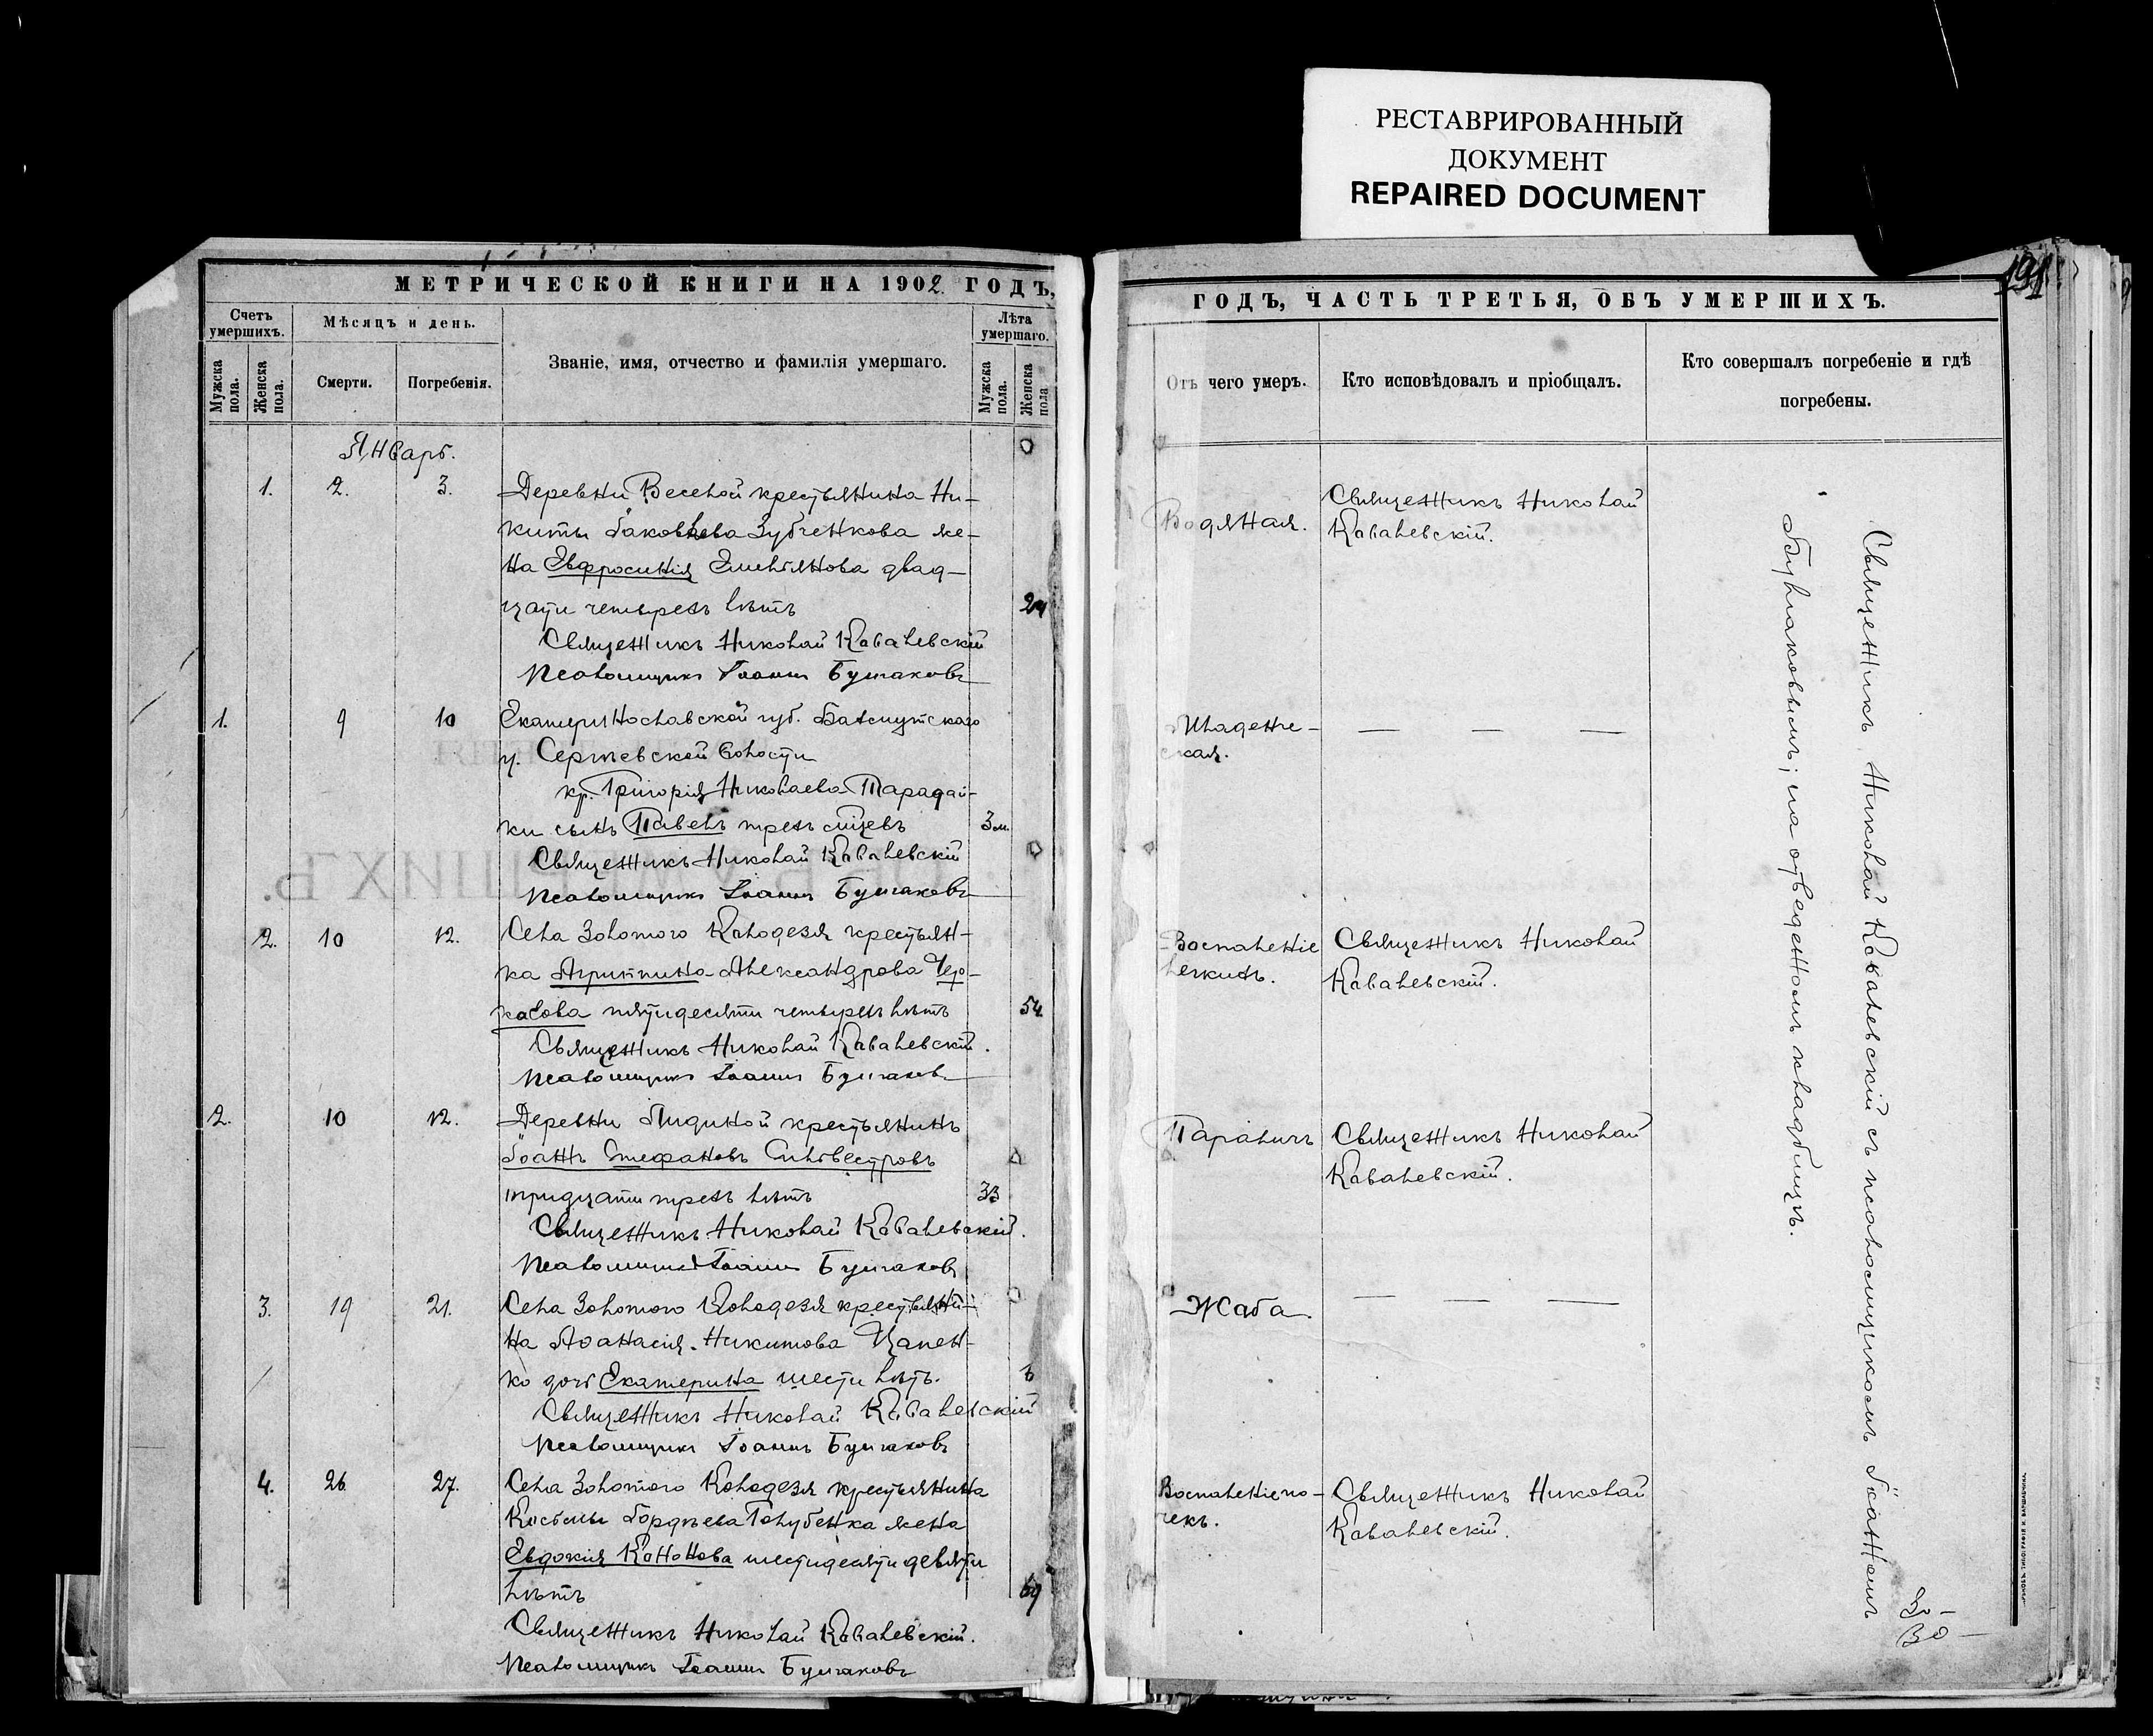 РЕСТАВРИРОВАННЫЙ
ДОКУМЕНТ
REPAIRED DOCUMENT
МЕТРИЧЕСКОЙ КНИГИ НА 1902 ГОДЪ,
Счетъ умершихъ.
Мужска пола.
Женска пола.
Мѣсяцъ и день.
Смерти.
Погребенія.
Званіе, имя, отчество и фамилія умершаго.
Лѣта умершаго.
Мужска пола.
Женска пола
Январь.
1. 2. 3. Деревни Веселой крестьянина Ни-
киты Іаковлева Зубченкова же-
на Евфросинія Емельянова двад-
цати четырехъ лѣтъ 24
Священникъ Николай Ковалевскій
Псаломщикъ Іоаннъ Булгаковъ
1. 9 10 Екатеринославской губ. Бахмутскаго
у. Сергіевской волости
кр. Григорія Николаева Тарадай-
ки сынъ Павелъ трехъ мѣсцевъ 3 м.
Священникъ Николай Ковалевскій
Псаломщикъ Іоаннъ Булгаковъ
2. 10 12. Села Золотого Колодезя крестьян-
ка Агриппина Александрова Чер-
касова пятидесяти четырехъ лѣтъ 54
Священникъ Николай Ковалевскій.
Псаломщикъ Іоаннъ Булгаковъ
2. 10 12. Деревни Лидиной крестьянинъ
Іоаннъ Стефановъ Сильвестровъ
тридцати трехъ лѣтъ 33
Священникъ Николай Ковалевскій.
Псаломщикъ Іоаннъ Булгаковъ
3. 19 21. Села Золотого Колодезя крестьяни-
на Аѳанасія Никитова Цапен-
ко дочь Екатерина шести лѣтъ. 6
Священникъ Николай Ковалевскій
Псаломщикъ Іоаннъ Булгаковъ
4. 26 27. Села Золотого Колодезя крестьянина
Косьмы Гордѣева Голубенка жена
Евдокія Кононова шестидесяти девяти
лѣтъ 69
Священникъ Николай Ковалевскій.
Псаломщикъ Іоаннъ Булгаковъ
191
ГОДЪ, ЧАСТЬ ТРЕТЬЯ, ОБЪ УМЕРШИХЪ.
Отъ чего умеръ.
Кто исповѣдовалъ и пріобщалъ.
Кто совершалъ погребеніе и гдѣ
погребены.
Водяная.
Священникъ Николай
Ковалевскій.
Младенче-
ская. — — —
Воспаленіе
легкихъ.
Священникъ Николай
Ковалевскій.
Параличъ
Священникъ Николай
Ковалевскій.
Жаба. — — —
Воспаленіе по-
чекъ.
Священникъ Николай
Ковалевскій.
Священникъ Николай Ковалевскій съ псаломщикомъ Іоанномъ
Булгаковымъ; на отведенномъ кладбищѣ.
30 —
30 —